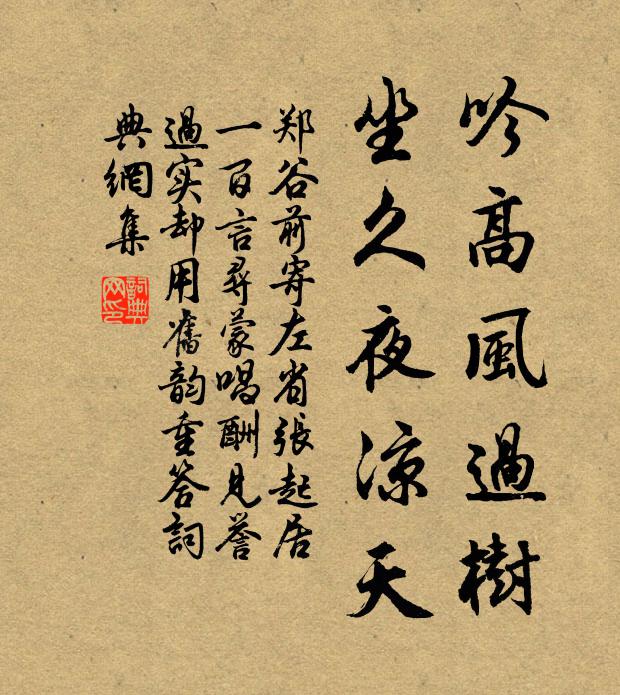 吟高風過樹
坐久夜涼天
郑谷前寄左省張起居
一百言尋蒙唱酬見誉
過实却用舊韵重答詞
典網集
詞典
网印